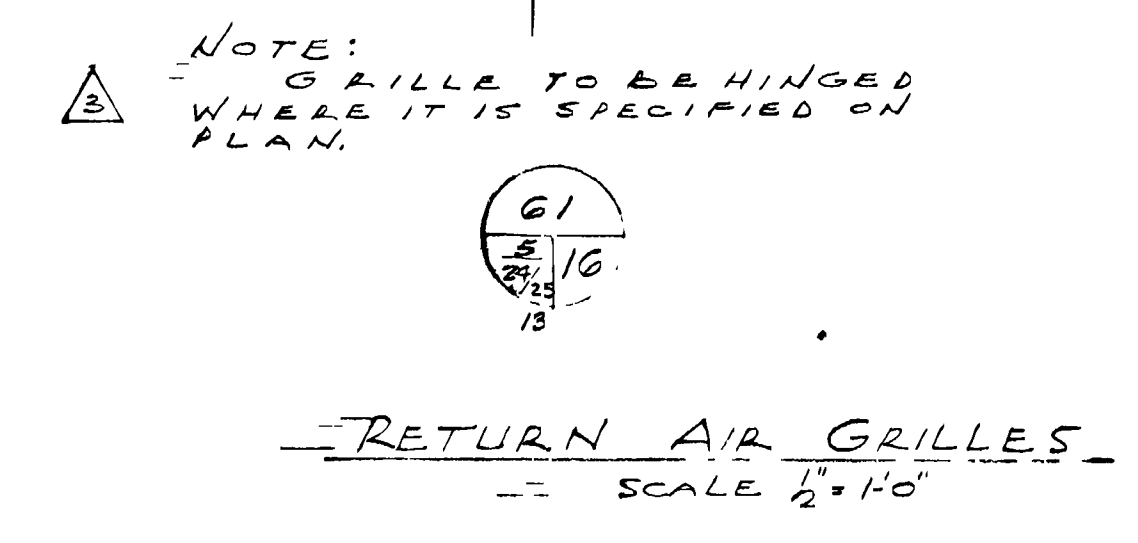 NOTE:
GRILLE TO BE HINGED
3
WHERE IT IS SPECIFIED ON
PLAN.
61
5
24/
/25
16
13
RETURN AIR GRILLES
SCALE 1/2" = 1'-0"